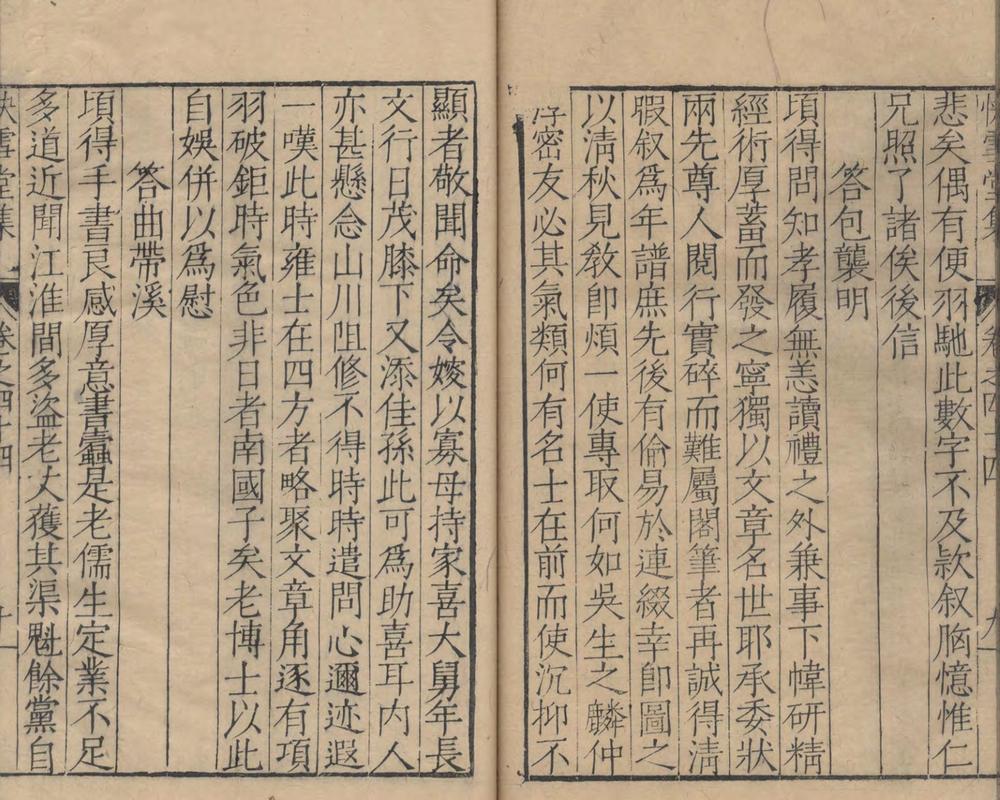 快雪堂集 卷之四十四
悲矣偶有便羽馳此數字不及欵叙胸憶惟仁
兄照了諸俟後信
答包襲明
頃得問知孝履無恙讀禮之外兼事下幃研精
經術厚蓄而發之寧獨以文章名世耶承委狀
兩先尊人閱行實碎而難屬閣筆者再誠得清
暇叙爲年譜庶先後有倫易於連綴幸即圖之
以清秋見教即煩一使專取何如吳生之麟仲
淳密友必其氣類何有名士在前而使沉抑不
顯者敬聞命矣令媵以寡母持家喜大舅年長
文行日茂膝下又添佳孫此可爲助喜耳内人
亦甚懸念山川阻修不得時時遣問心邇迹遐
一嘆此時雍士在四方者略聚文章角逐有項
羽破鉅時氣色非日者南國子矣老博士以此
自娛併以爲慰
答曲帶溪
頃得手書良感厚意書蠹是老儒生定業不足
多道近聞江淮間多盜老丈獲其渠魁餘黨自
快雪堂集 卷之四十四 十一